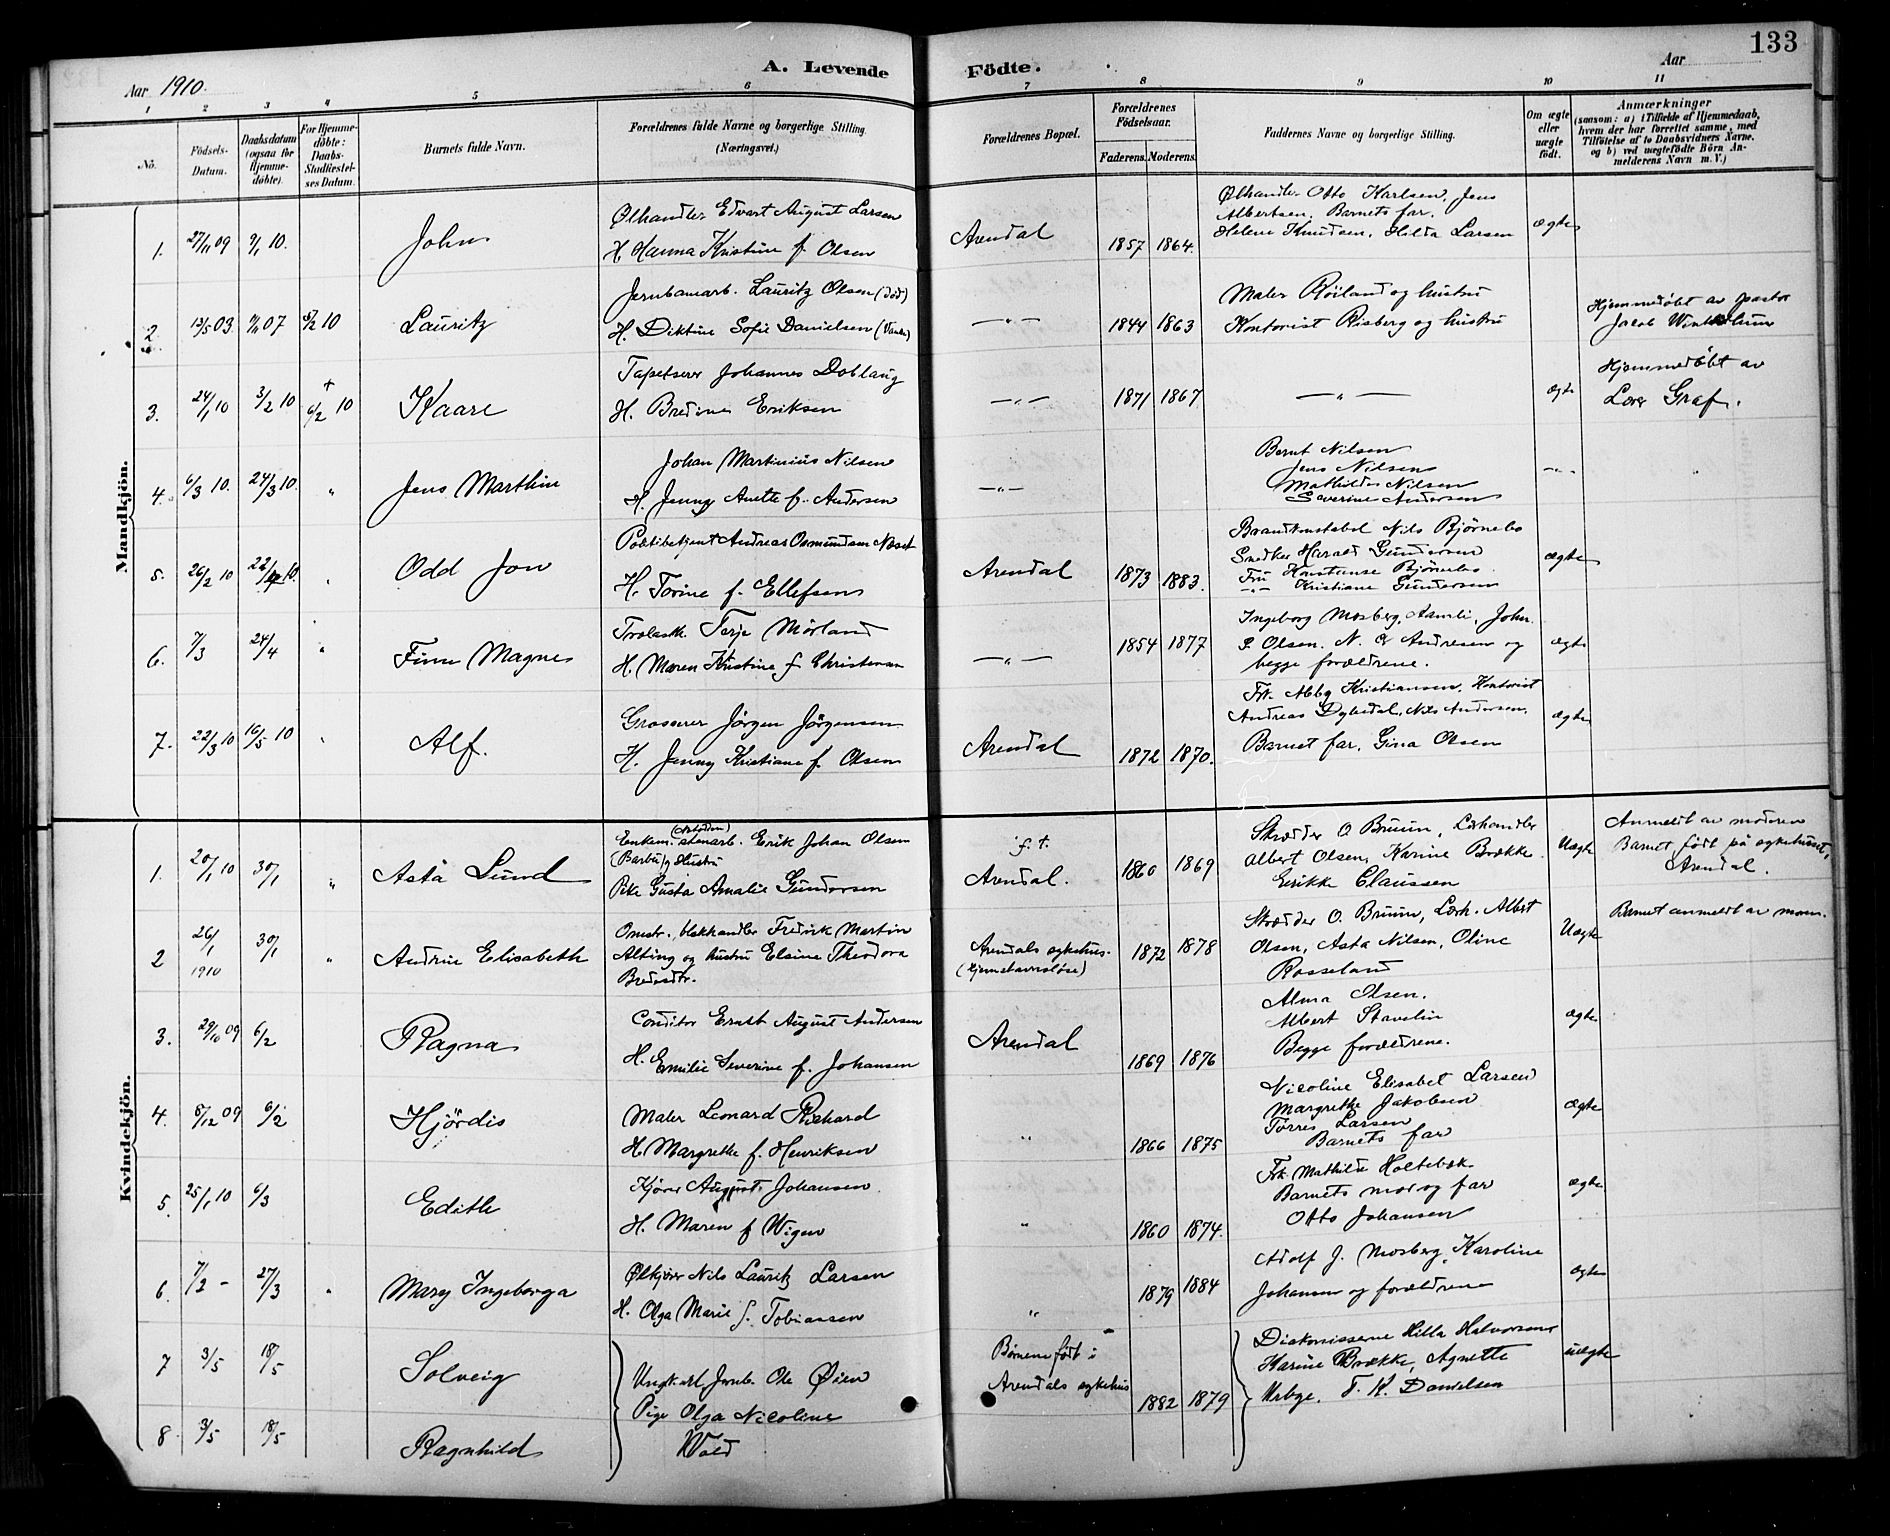 133
Aar 1910. A. Levende Födte. Aar
1 2 3 4 5 6 7 8 9 10 11
No.
Födsels-Datum.
Daabsdatum (ogsaa för Hjemme-döbte).
For Hjemme-döbte: Daabs-Stadfæstel-ses Datum.
Barnets fulde Navn.
Forældrenes fulde Navne og borgerlige Stilling.
(Næringsvei.)
Forældrenes Bopæl.
Forældrenes Födselsaar.
Faderens. Moderens.
Faddernes Navne og borgerlige Stilling.
Om ægte eller uægte født.
Anmærkninger
(saasom: a) i Tilfælde af Hjemmedaab,
hvem der har forrettet samme, med
Tilföielse af to Daabsvidners Navne,
og b) ved uægtefödte Börn An-
melderens Navn m. V.)
Mandkjön.
1. 27/11 09 9/1 10. John
Ølhandler Edvart August Larsen
H. Hanna Kristine f. Olsen
Arendal 1857 1864.
Ølhandler Otto Karlsen, Jens
Albertsen. Barnets far.
Helene Knudsen, Hilda Larsen
ægte
2. 13/5 03 07 6/2 10 Lauritz
Jernbanearb. Lauritz Olsen (död)
H. Diktine Sofie Danielsen
—"— 1844 1863
Maler Röiland og hustru
Kontorist Risberg og hustru
Hjemmedöbt av pastor
Jacob
3. 24/1 10 3/2 10 + 6/2 10 Kaare
Tapetserer Johannes Doblaug
H. Bredine Eriksen
—"— 1871 1867 —"— ægte
Hjemmedöbt av
Lærer Graf.
4. 6/3 10. 24/3 10. " Jens Marthin
Johan Martinius Nilsen
H. Jenny Anette f. Andersen
—"—
Bernt Nilsen
Jens Nilsen
Mathilde Nilsen
Severine Andersen
—"—
5. 26/2 10 10. " Odd Jon
Politibetjent Andreas Osmundsen Næset
H. Torine f. Ellefsen
Arendal 1873 1883.
Brandkonstabel Nils Bjørnebo
Snedker Harald Gundersen
Fru Konstanse Bjørnebo
—"— Kristiane Gundersen
ægte
6. 7/3 24/4 " Finn Magnes
Terje Mörland
H. Maren Kristine f Christensen
—"— 1854 1877
Ingeborg Mosberg, Aamli, John.
P. Olsen. N. O Andresen og
begge forældrene.
ægte
7. 22/3 10 16/5 10 " Alf.
Grosserer Jörgen Jörgensen
H. Jenny Kristiane f. Olsen
Arendal 1872 1870.
Frk. Abby Kristiansen, Kontorist
Andreas Dybedal, Nils Andersen,
Barnets far, Gina Olsen
ægte
Kvindekjön.
1. 20/1 10 30/1 " Asta Lund
Enkem. stenarb. Erik Johan Olsen
(Barbu) og Hustru
Pike Gusta Amalie Gundersen
f. t.
Arendal. 1860 1869
Skrædder O Bruun, Lærhandler
Albert Olsen, Karine Brække
Erikke Claussen
Uægte
Anmeldt av moderen
Barnet födt på sykehuset,
Arendal.
2 26/1 1910 30/1 " Andrine Elisabeth
Omstr., blekhandler Fredrik Martin
Alting og hustru Elsine Theodora
Bredesdtr.
Arendals sykehus.
(hjemstavnslöse) 1872 1878
Skrædder O. Bruun, Lærh. Albert
Olsen, Asta Nilsen, Oline
Rosseland
Uægte
Barnet anmeldt av moren.
3. 29/10 09 6/2 Ragna
Conditor Ernst August Andersen
H. Emilie Severine f. Johansen
Arendal 1869 1876
Alma Olsen.
Albert Stavelin
Begge forældrene.
ægte
4. 8/12 09 6/2 Hjördis
Maler Leonard Richard
H. Margrethe f. Henriksen
" 1866 1875
Nicoline Elisabet Larsen
Margrethe Jakobsen
Törres Larsen
Barnets far
ægte
5. 25/1 10 6/3 Edith
Kjörer August Johansen
H. Maren f Wigen
" 1860 1874.
Frk Mathilde Holtebæk
Barnets mor og far
Otto Johansen
ægte
6. 7/2 – 27/3 " Mary Ingeborga
Ølkjörer Nils Lauritz Larsen
H. Olga Marie f. Tobiassen
" 1879 1884
Adolf J. Mosberg, Karoline
Johansen og forældrene
ægte
7 3/5 18/5 Solveig
8 3/5 18/5 Ragnhild
Ungkarl Jernb. Ole Øien
Pige Olga Nicoline
Wold
Børnene født i
Arendals sykehus 1882 1879
Diakonisserne Hilla Halvorsen
Karine Brække, Agnette
Urbye. T. K. Danielsen
uægte